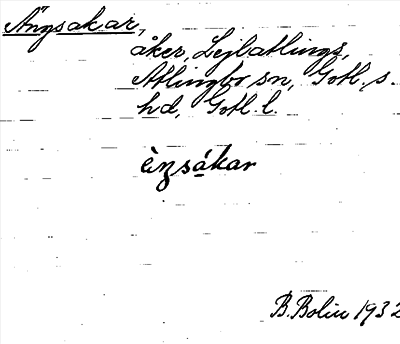 Ängsakar,
åker, Lejbatlings,
Atlingbo sn, Gotl. s.
hd, Gotl. l.
èŋsákar
B. Bolin 1932